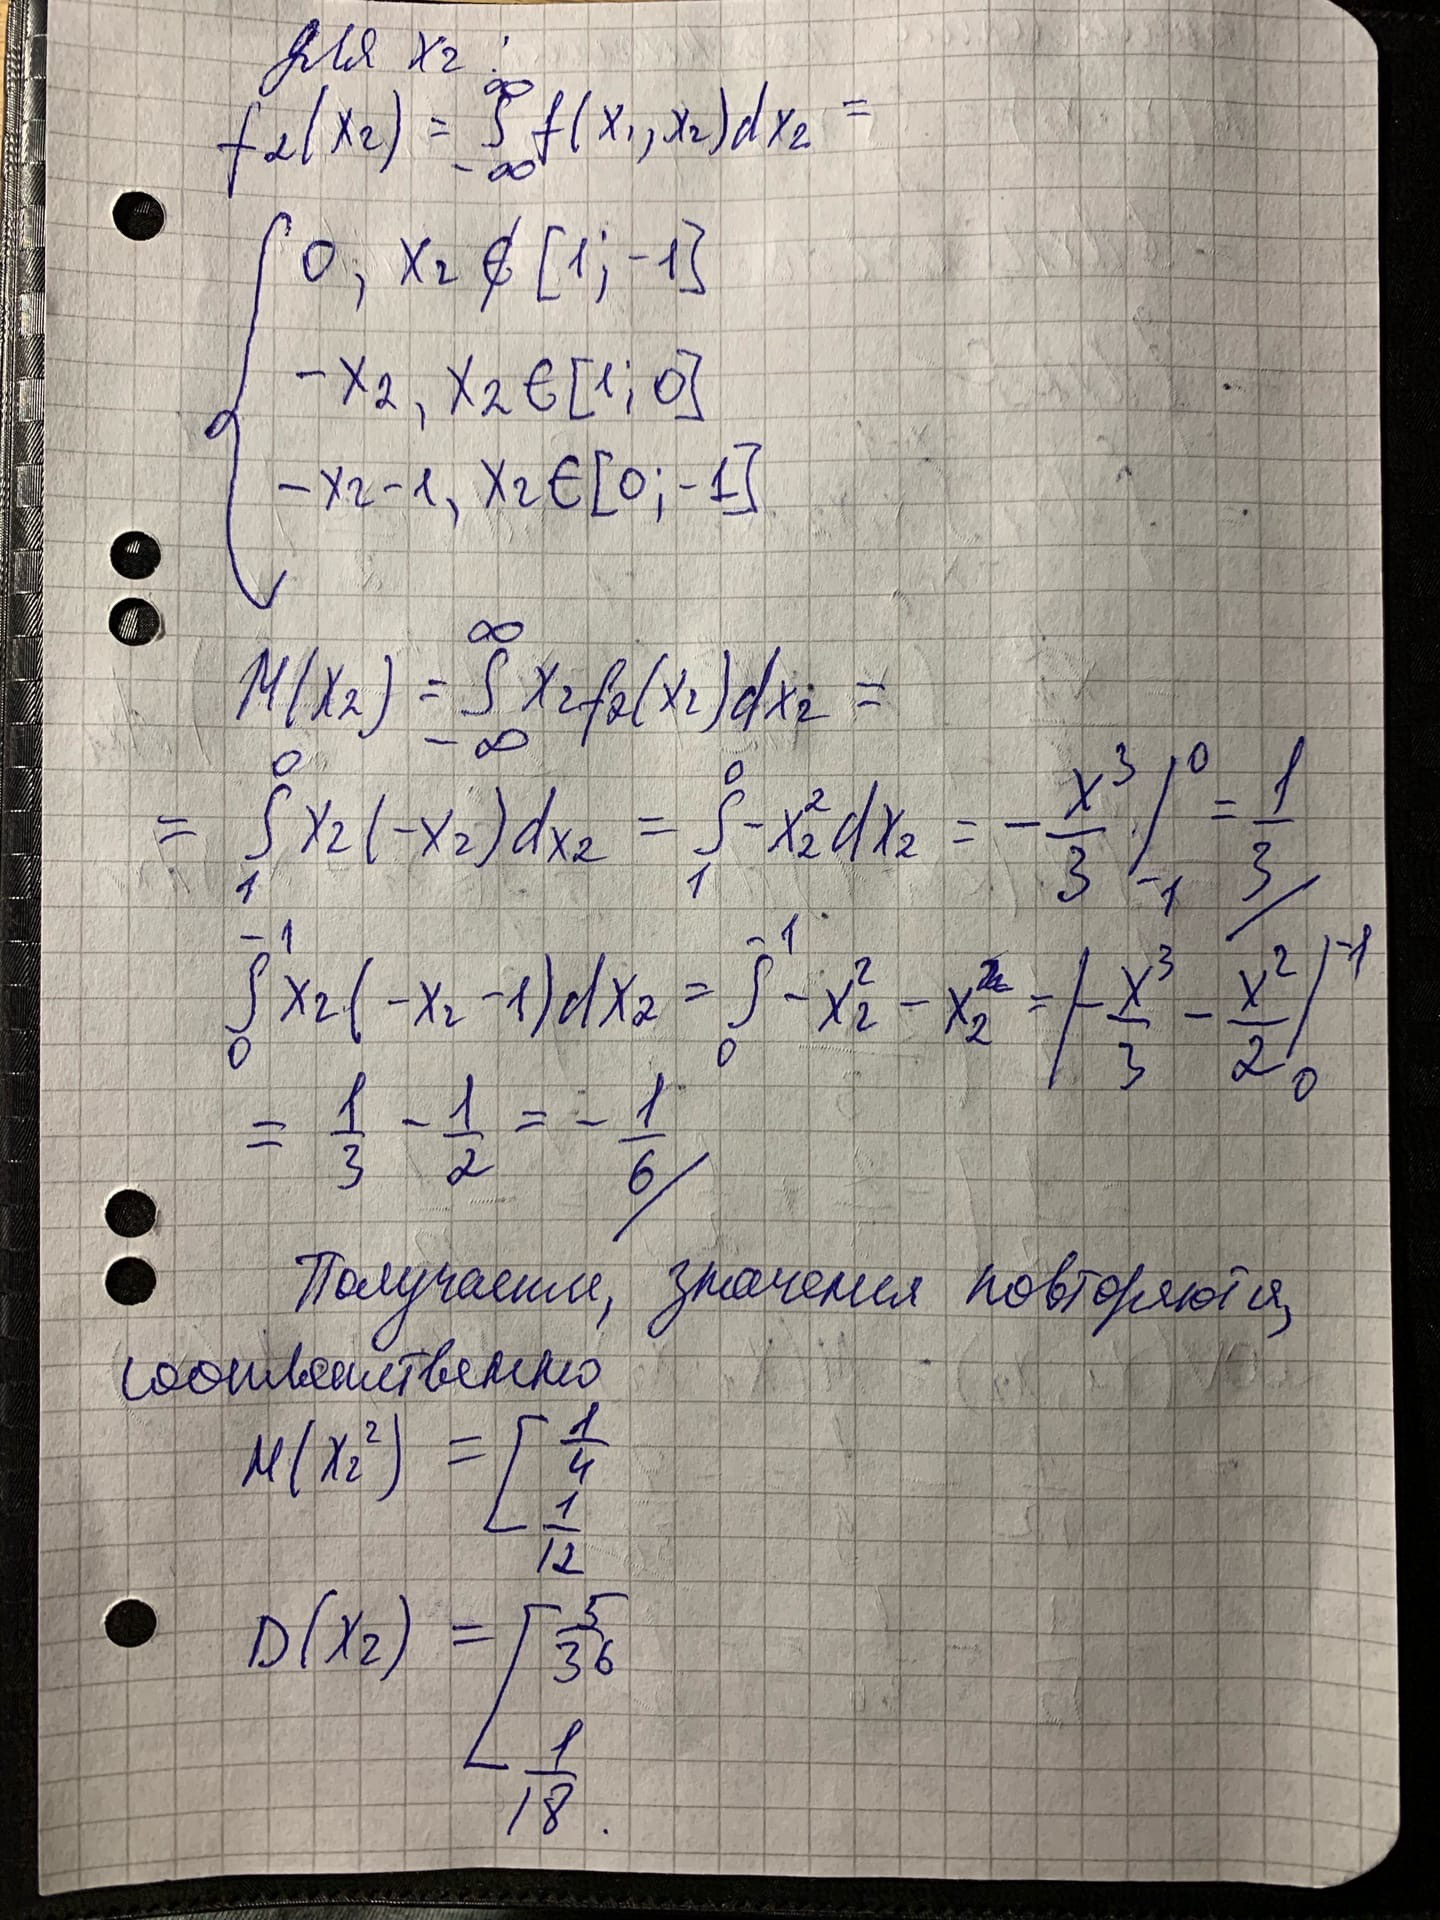 для x₂:
f₂(x₂) = ∫_{-∞}^{∞} f(x₁, x₂)dx₂ =
{ 0; x₂ ∉ [1; -1]
-x₂, x₂ ∈ [1; 0]
-x₂-1, x₂ ∈ [0; -1]
M(x₂) = ∫_{-∞}^{∞} x₂f₂(x₂)dx₂ =
= ∫_{1}^{0} x₂(-x₂)dx₂ = ∫_{1}^{0} -x₂²dx₂ = -x³/3 |_{-1}^{0} = 1/3
∫_{0}^{-1} x₂(-x₂-1)dx₂ = ∫_{0}^{-1} -x₂² - x₂ = |-x³/3 - x²/2|_{0}^{-1}
= 1/3 - 1/2 = -1/6
Получаем, значения повторяются,
соответственно
M(x₂²) = [ 1/4
1/12
D(x₂) = [ 5/36
1/18.